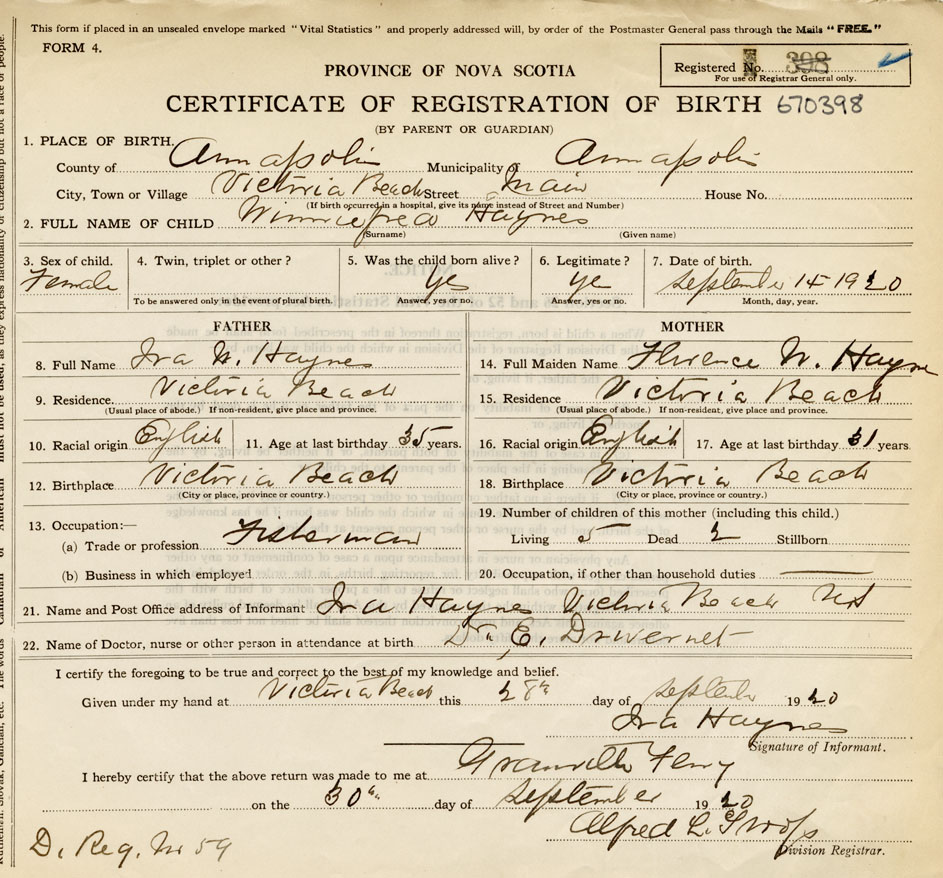 This form if placed in an unsealed envelope marked "Vital Statistics" and properly addressed will, by order of the Postmaster General pass through the Mails "FREE."
FORM 4.
Registered No. 398
For use of Registrar General only.
PROVINCE OF NOVA SCOTIA
CERTIFICATE OF REGISTRATION OF BIRTH 670398
(BY PARENT OR GUARDIAN)
1. PLACE OF BIRTH.
County of Annapolis Municipality of Annapolis
City, Town or Village Victoria Beach Street Main House No.
(If birth occurred in a hospital, give its name instead of Street and Number)
2. FULL NAME OF CHILD Winniefred Haynes
(Surname) (Given name)
3. Sex of child. 4. Twin, triplet or other? 5. Was the child born alive? 6. Legitimate? 7. Date of birth.
Female yes ye September 14 1920
To be answered only in the event of plural birth. Answer, yes or no. Answer, yes or no. Month, day, year.
FATHER MOTHER
8. Full Name Ira W. Haynes 14. Full Maiden Name Florence W. Hayne
9. Residence. Victoria Beach 15. Residence Victoria Beach
(Usual place of abode.) If non-resident, give place and province. (Usual place of abode.) If non-resident, give place and province.
10. Racial origin English 11. Age at last birthday 35 years. 16. Racial origin English 17. Age at last birthday 31 years.
12. Birthplace Victoria Beach 18. Birthplace Victoria Beach
(City or place, province or country.) (City or place, province or country.)
13. Occupation:— 19. Number of children of this mother (including this child.)
(a) Trade or profession Fisherman Living 5 Dead 2 Stillborn
(b) Business in which employed 20. Occupation, if other than household duties
21. Name and Post Office address of Informant Ira Haynes Victoria Beach NS
22. Name of Doctor, nurse or other person in attendance at birth Dr. E.
I certify the foregoing to be true and correct to the best of my knowledge and belief.
Given under my hand at Victoria Beach this 28th day of September 1920
Ira Haynes
Signature of Informant.
I hereby certify that the above return was made to me at Granville Ferry
on the 30th day of September 1920
Alfred L.
Division Registrar.
D. Reg. No 59